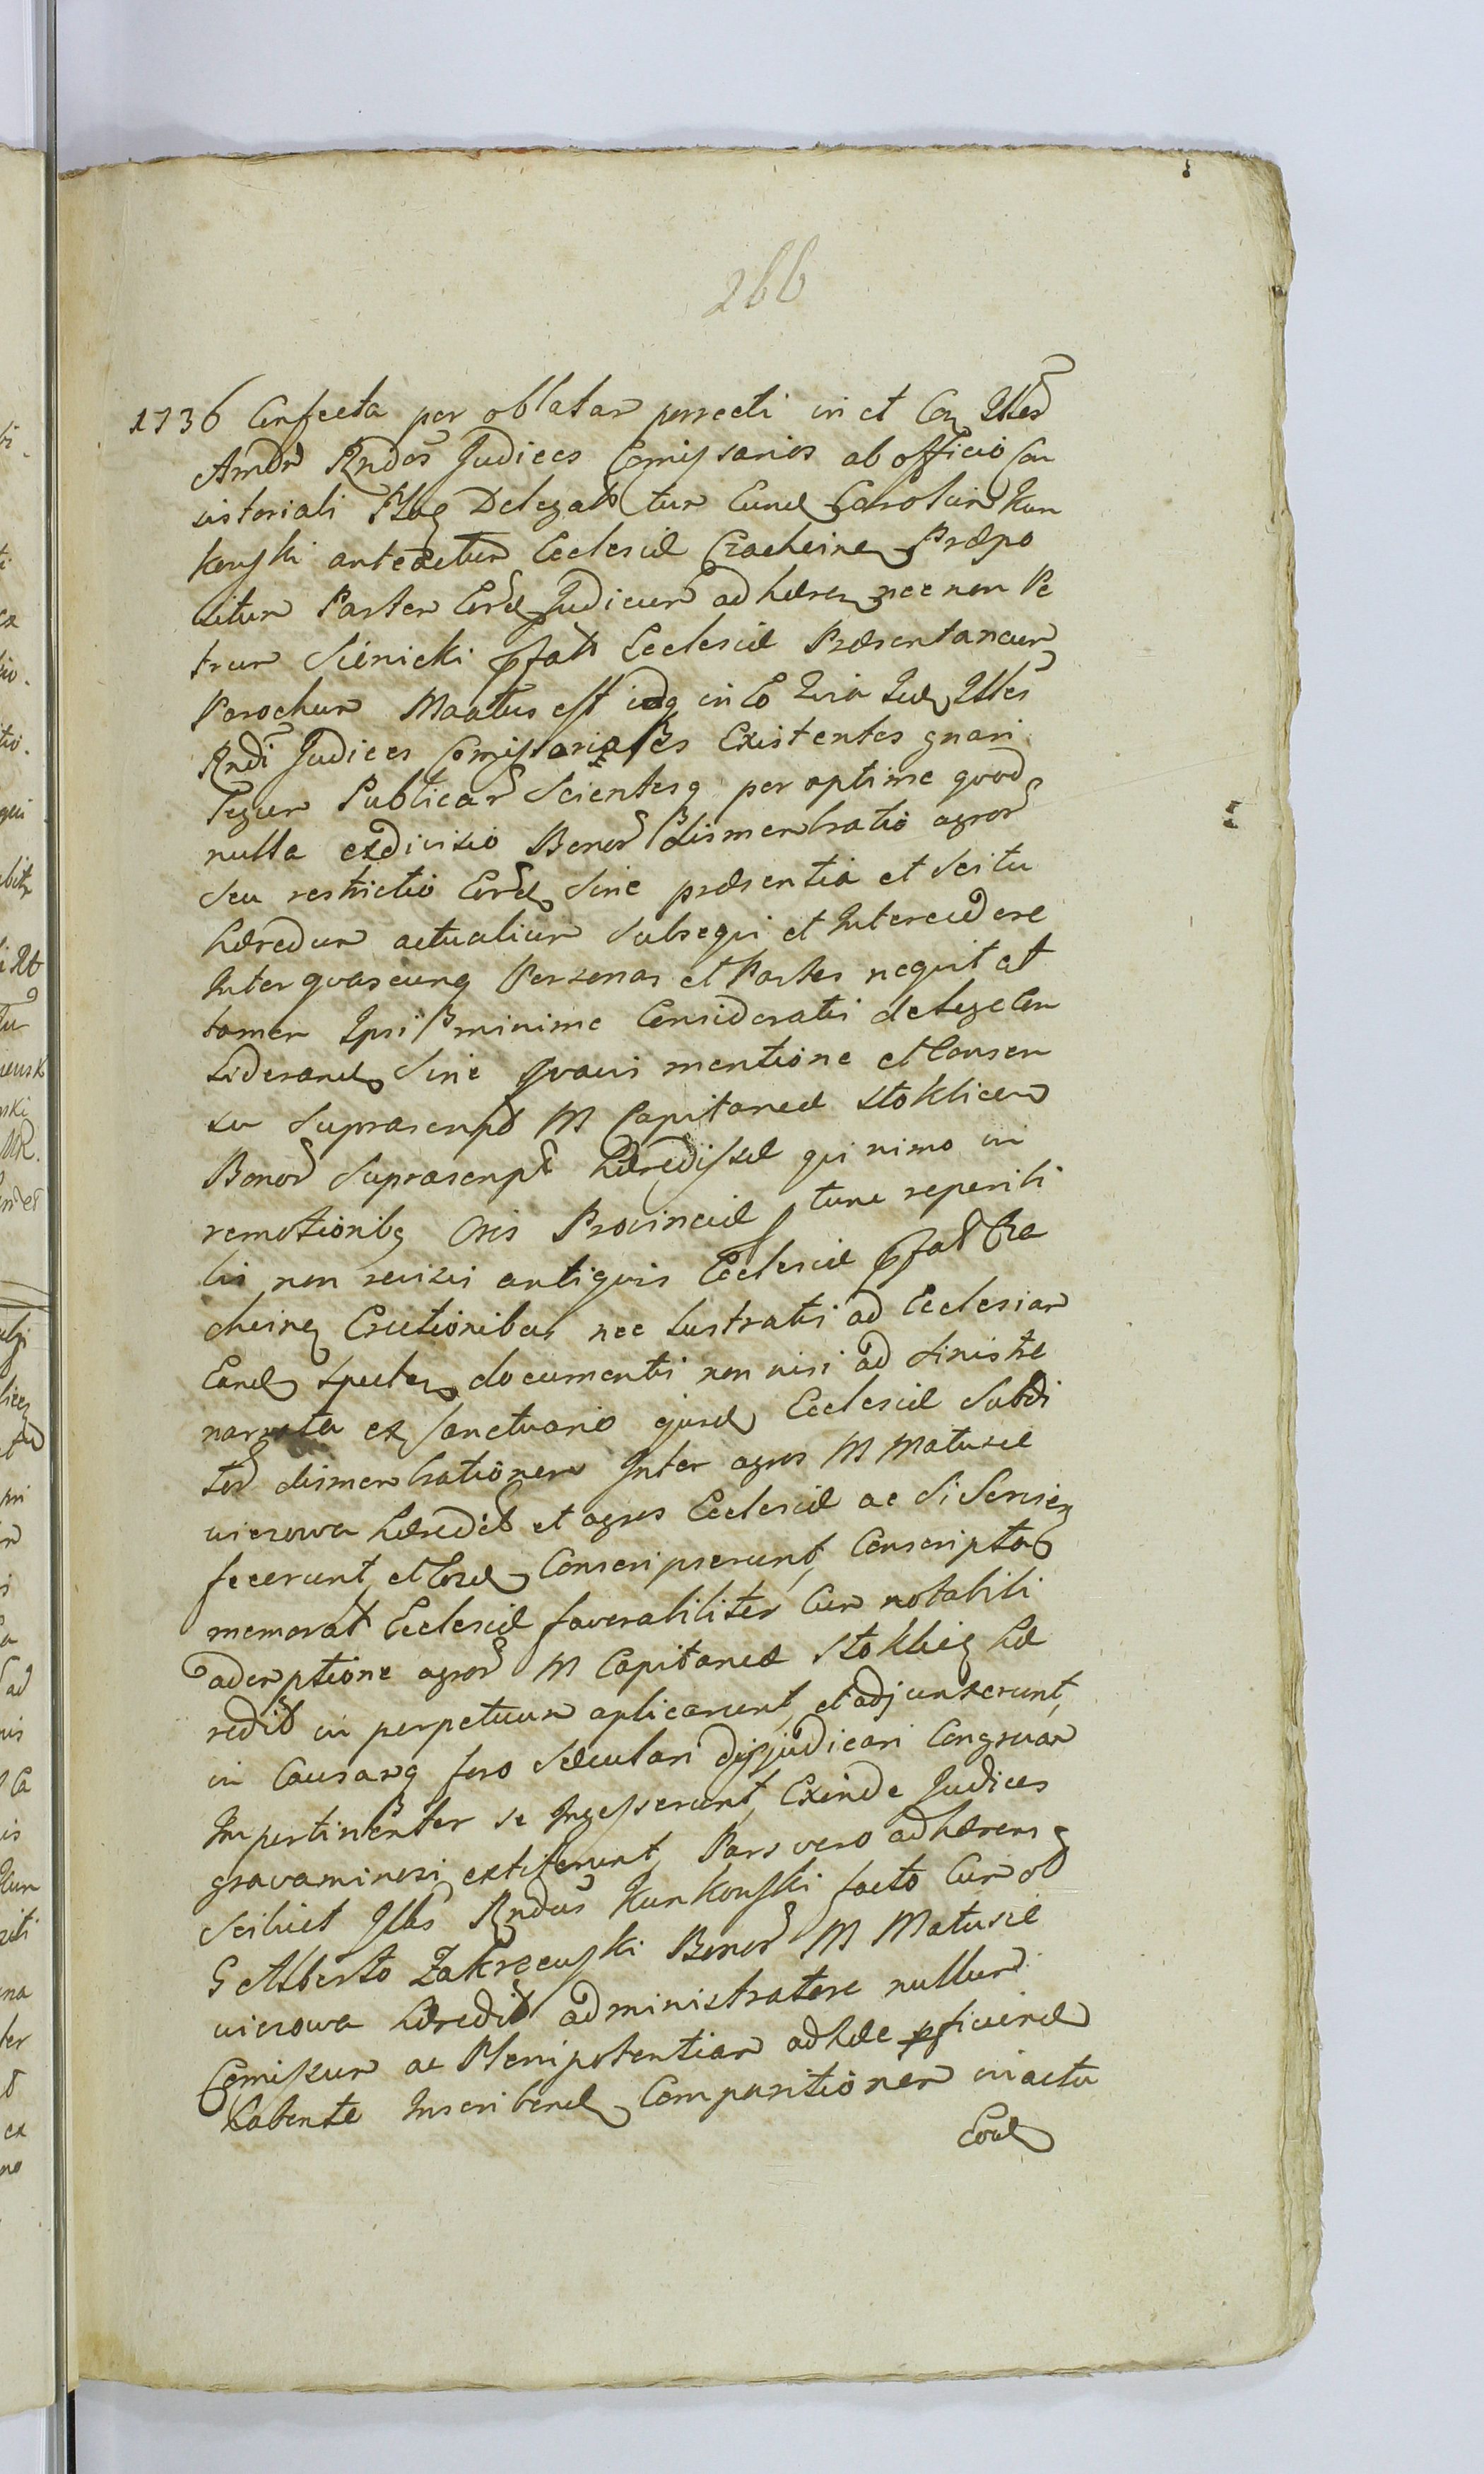 266
1736 Confecta per oblatam porrecti in et Con Illes
Amdm Rndos Judices Comissarios ab officio Con
sistoriali Plocen Delegat tum Eund Carolum Kun
kowski antedictum Ecclesiæ Craclein Præpo
situm Partem Eord Judicum adhæren nec non Pe
trum Sienicki pfatæ Ecclesiæ Præsentaneum
Parochum Motus est idq in Eo Quia Iid Illes
Rndi Judices Comissariales Existentes gnari
Legum Publicar Scientesq per optime quod
nulla exdivisio Bonor dismembratio agror
seu restrictio Eord sine præsentia et scitu
hæredum actualium subsequi et Intercidere
Inter quascunq Personas et Partes nequit at
tamen Ipsi minime Consideratis de lege Con
siderand sine quavis mentione et Consen
su suprascript M Capitaneæ Stoklicen
Bonor suprascript hæredissæ qui nimo in
remotioribq Oris Provinciæ tunc reperibi
lis non revisis antiquis Ecclesiæ pfat Cra
clein Erectionibus nec lustratis ad Ecclesiam
Eand spectan documentis non nisi ad sinistre
narrata ex sanctuario ejusd Ecclesiæ subdi
tor dismembrationem Inter agros M Matusie
wiczowa hæredit et agros Ecclesiæ ac si Servien
fecerunt et Eosd Conscripserunt, Conscriptos
memorat Ecclesiæ favorabiliter Cum notabili
ademptione agror M Capitaneæ Stoklic hæ
redit in perpetuum aplicarunt, et adjunxerunt,
in Causamq foro sæculari disjudicari Congruam
Impertinenter se Ingesserunt, Exinde Judices
gravaminosi extiterunt, Pars vero adhærens
scilicet Illris Rndus Kunkowski facto Cum
G Alberto Zakrzewski Bonor M Matusie
wiczowa hæredit administratore nullum
Comissum ac Plenipotentiam ad hæc pficiend
habente Inscribend Compositionem in actu
Eod